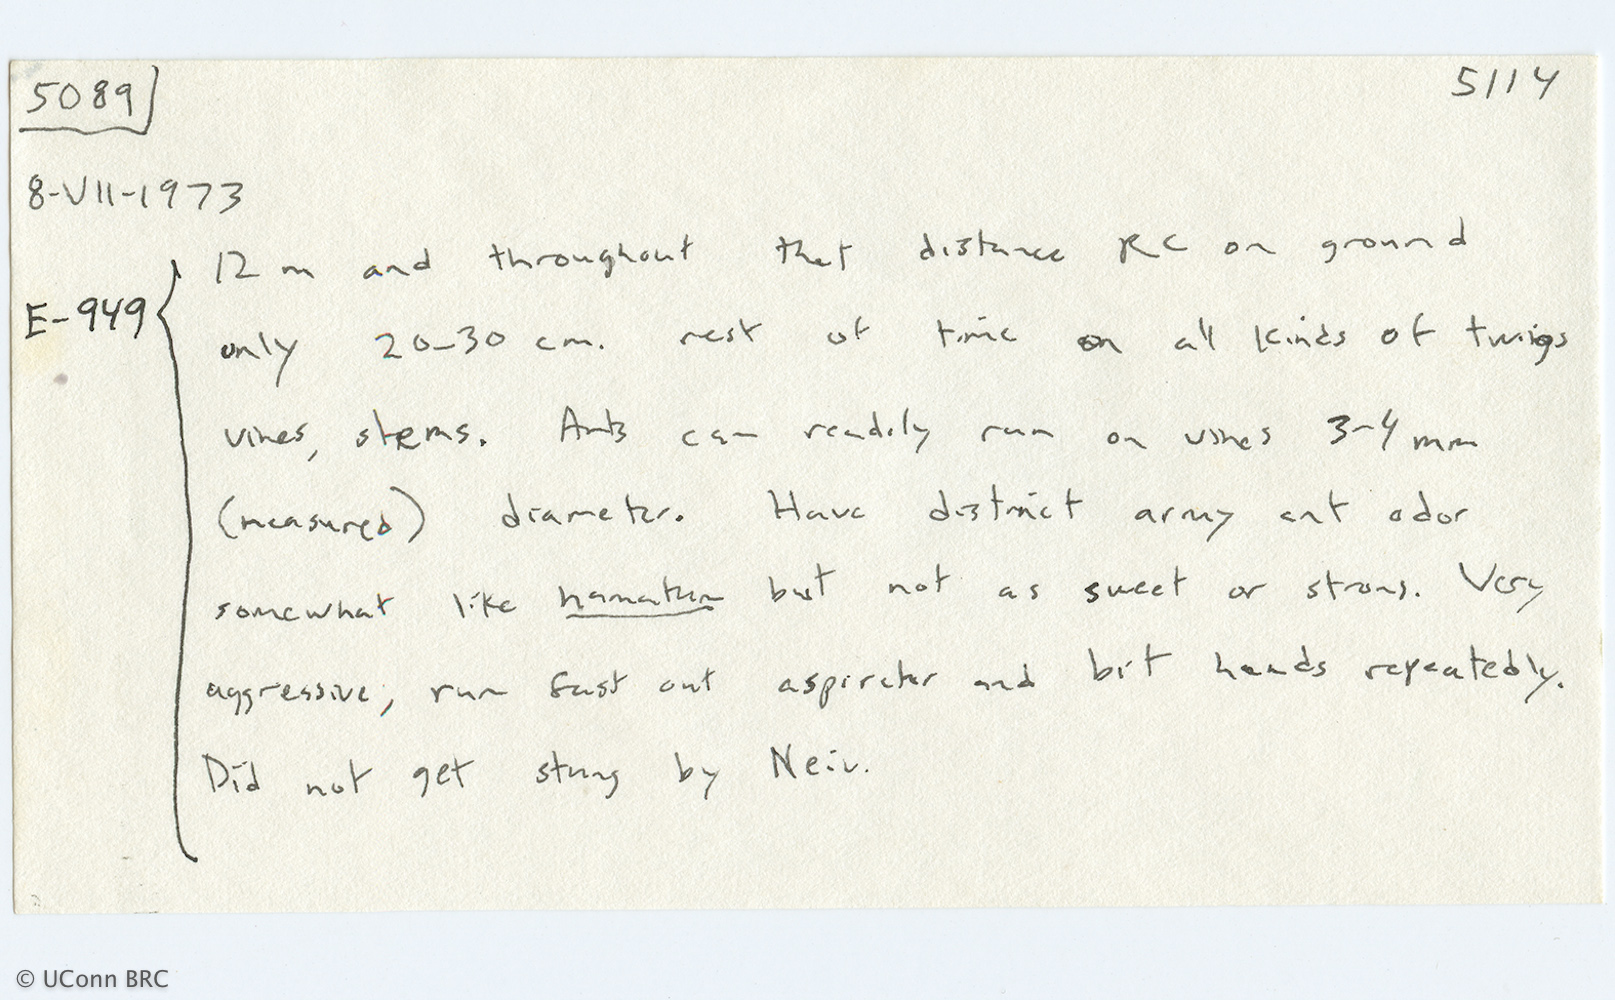 5089
5114
8-VII-1973
E-949
12 m and throughout that distance RC on ground
only 20-30 cm. rest of time on all kinds of twigs
vines, stems. Ants can readily run on vines 3-4 mm
(measured) diameter. Have distinct army ant odor
somewhat like hamatum but not as sweet or strong. Very
aggressive, run fast out aspirator and bit hands repeatedly.
Did not get stung by Neiv.
© UConn BRC